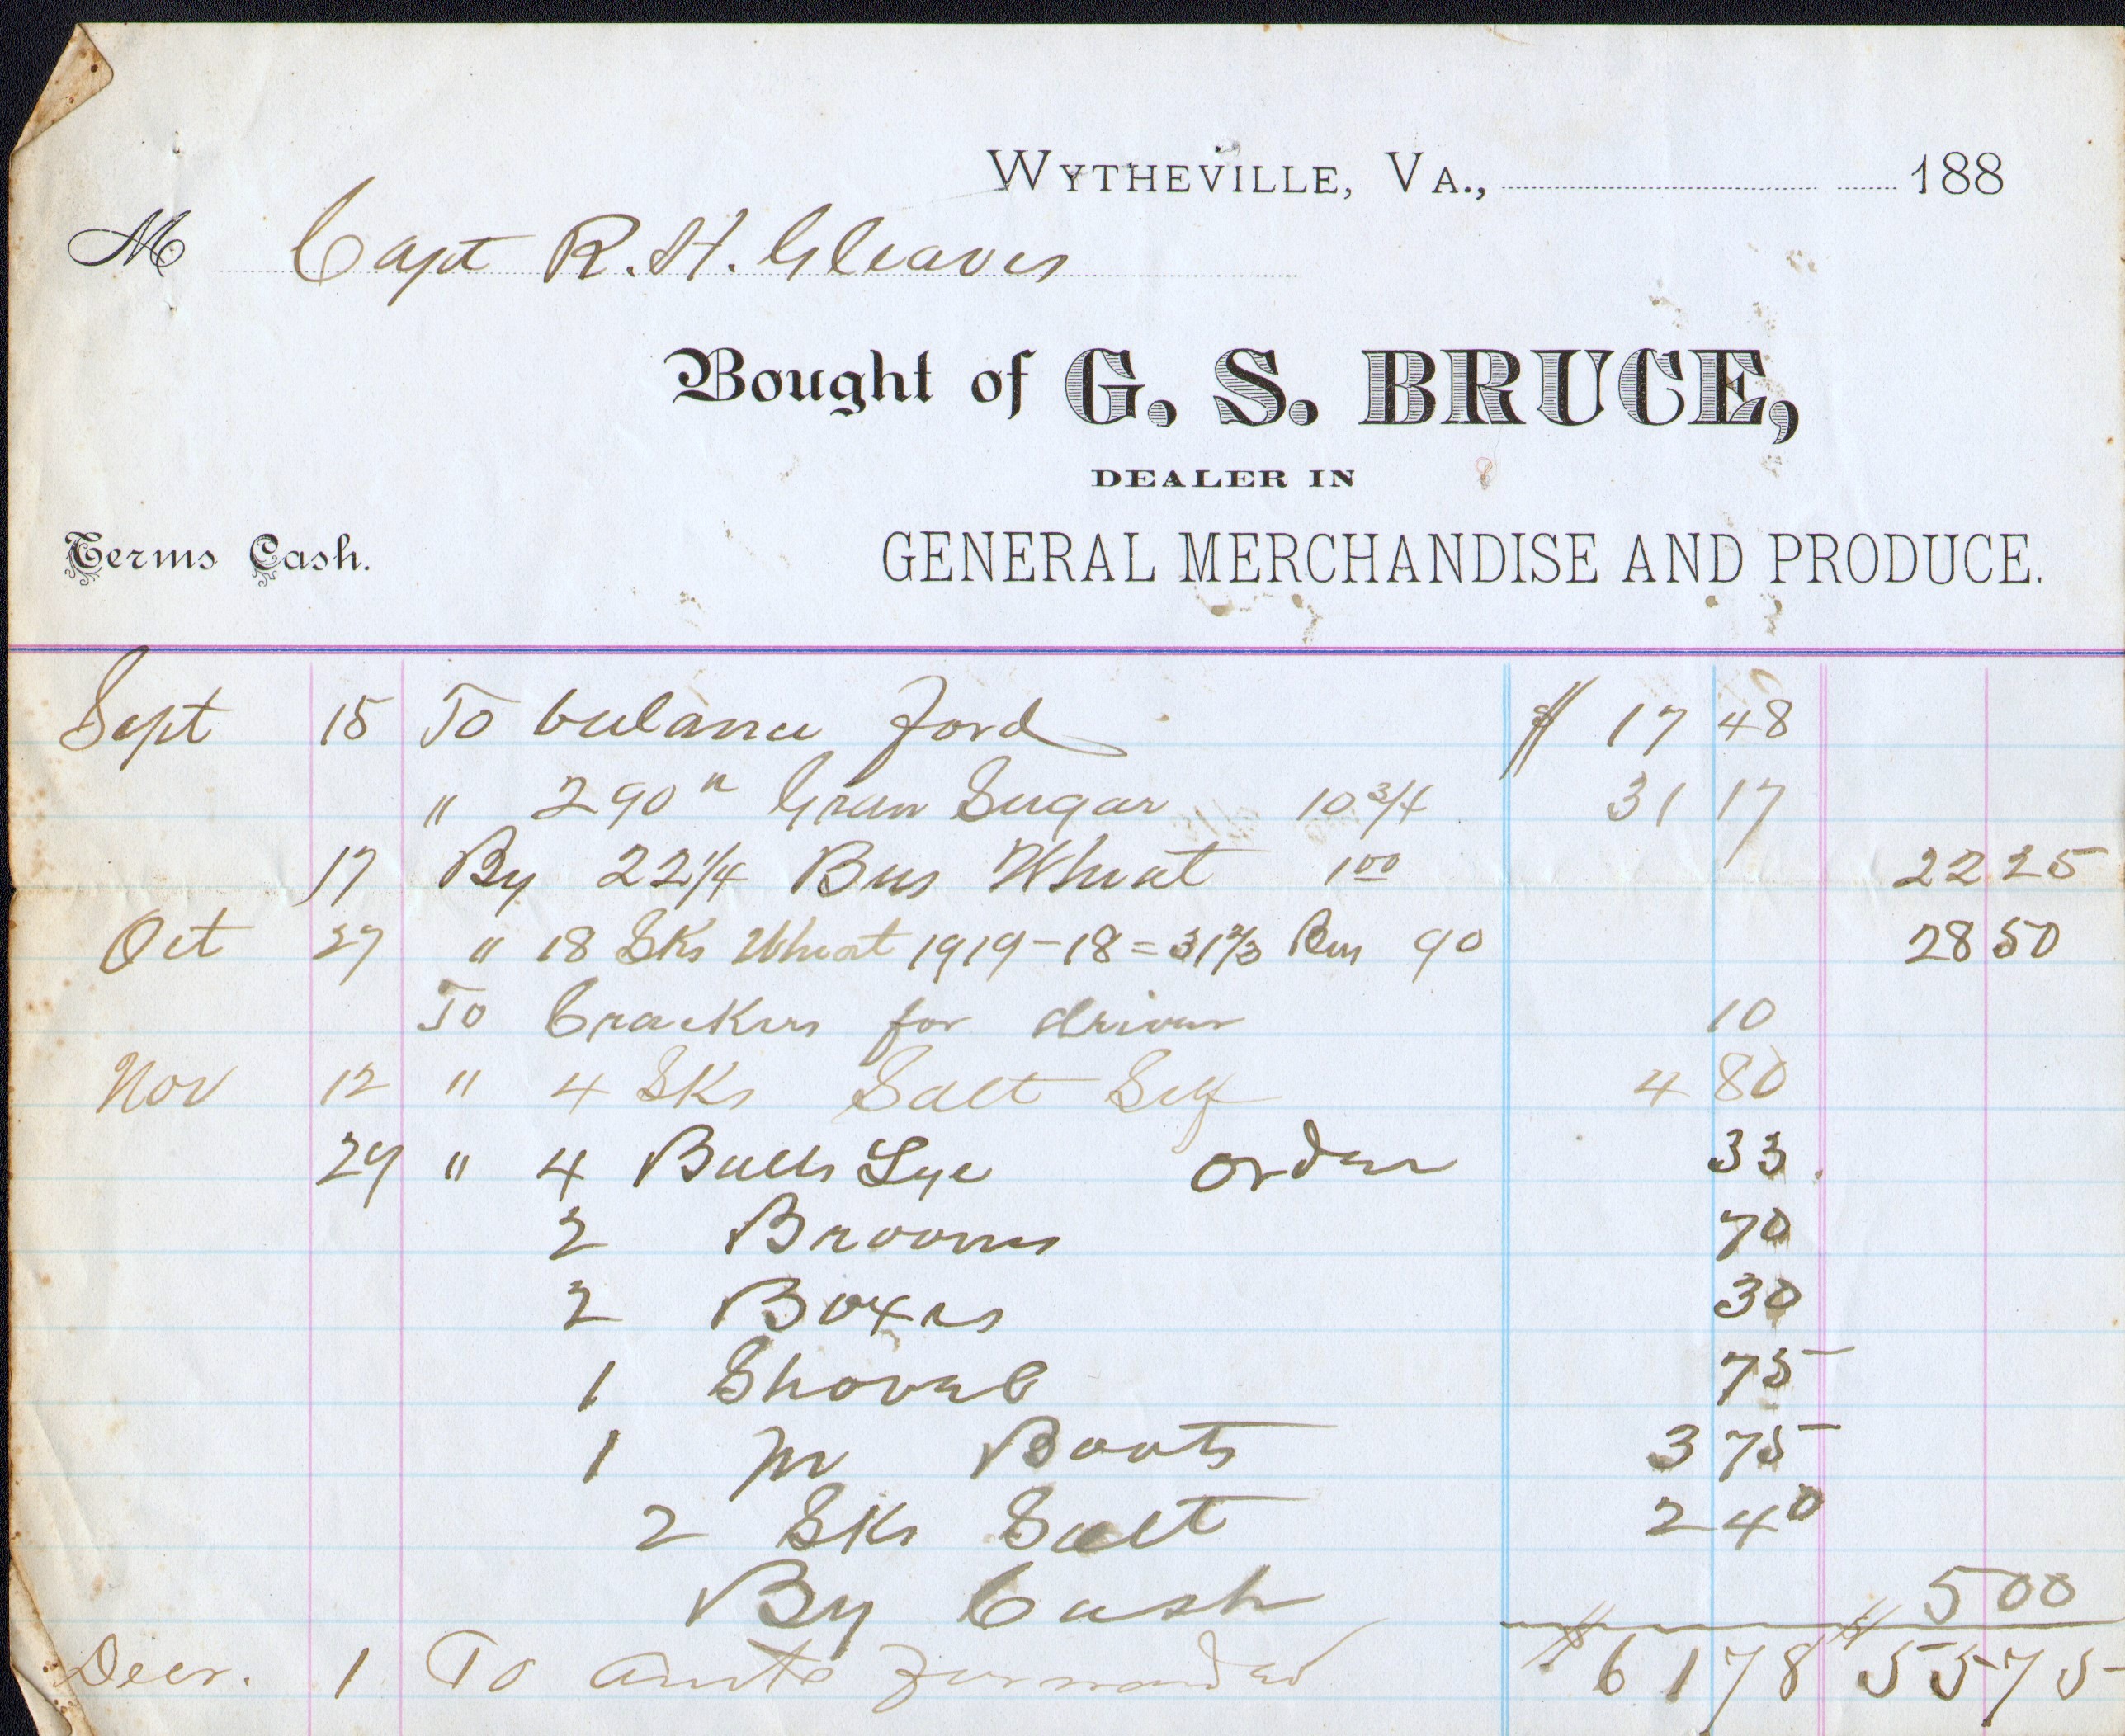 WYTHEVILLE, VA., 188
M Capt R. H. Gleaves
Bought of G. S. BRUCE,
DEALER IN
Terms Cash. GENERAL MERCHANDISE AND PRODUCE.
Sept 15 To balance ford $ 17 48
" 290 " Gran Sugar 10 3/4 31 17
17 By 22 1/4 Bus Wheat 1 00 22 25
Oct 27 " 18 Sks Wheat 1919-18=31 2/3 Bus 90 28 50
To Crackers for driver 10
Nov 12 " 4 Sks Salt Self 4 80
29 " 4 Balls Lye order 33
2 Brooms 70
2 Boxes 30
1 Shovel 75
1 pr Boots 3 75
2 Sks Salt 2 40
By Cash 5 00
Decr. 1 To amts forwarded $ 61 78 $ 55 75